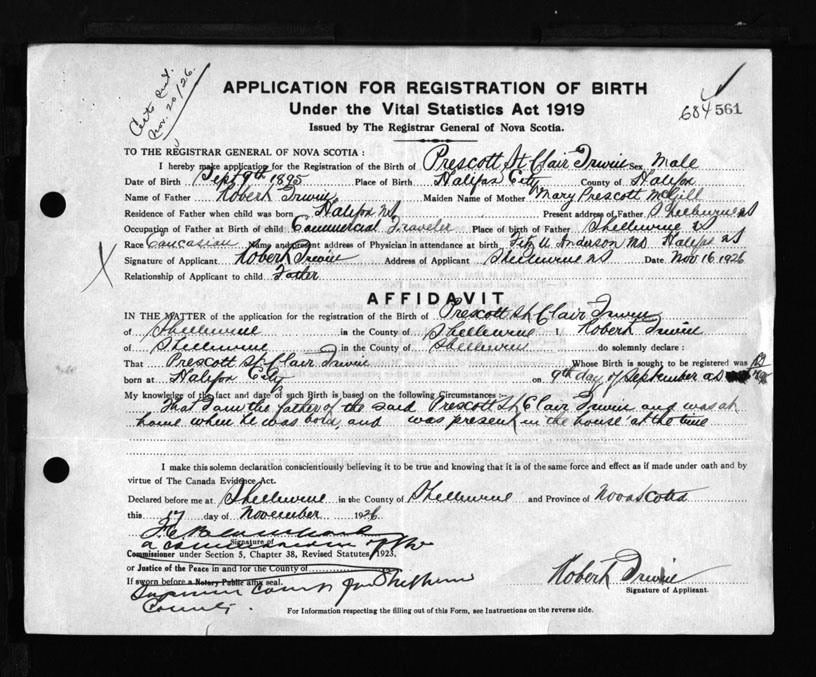 Nov. 20/26.
APPLICATION FOR REGISTRATION OF BIRTH
Under the Vital Statistics Act 1919
684561
Issued by The Registrar General of Nova Scotia.
TO THE REGISTRAR GENERAL OF NOVA SCOTIA :
I hereby make application for the Registration of the Birth of Prescott St Clair Irwin Sex Male
Date of Birth Sept 9th 1895 Place of Birth Halifax City County of Halifax
Name of Father Robert Irwin Maiden Name of Mother Mary Prescott McGill
Residence of Father when child was born Halifax NS Present address of Father Shelburne NS
Occupation of Father at Birth of child Commercial Traveler Place of birth of Father Shelburne NS
Race Caucasian Name and present address of Physician in attendance at birth Anderson MD Halifax NS
Signature of Applicant Robert Irwin Address of Applicant Shelburne NS Date Nov 16 1926
Relationship of Applicant to child Father
AFFIDAVIT
IN THE MATTER of the application for the registration of the Birth of Prescott St Clair Irwin
of Shelburne in the County of Shelburne I, Robert Irwin
of Shelburne in the County of Shelburne do solemnly declare :
That Prescott St. Clair Irwin Whose Birth is sought to be registered was
born at Halifax City on 9th day of September AD
My knowledge of the fact and date of such Birth is based on the following Circumstances :-
That I am the father of the said Prescott St Clair Irwin and was at
home when he was born, and was present in the house at the time
I make this solemn declaration conscientiously believing it to be true and knowing that it is of the same force and effect as if made under oath and by
virtue of The Canada Evidence Act.
Declared before me at Shelburne in the County of Shelburne and Province of Nova Scotia
this 17 day of November 1926
Signature of
a commissioner of the
Commissioner under Section 5, Chapter 38, Revised Statutes, 1923.
or Justice of the Peace in and for the County of
If sworn before a Notary Public any seal.
Supreme Court for Shelburne
County.
Robert Irwin
Signature of Applicant.
For Information respecting the filling out of this Form, see Instructions on the reverse side.